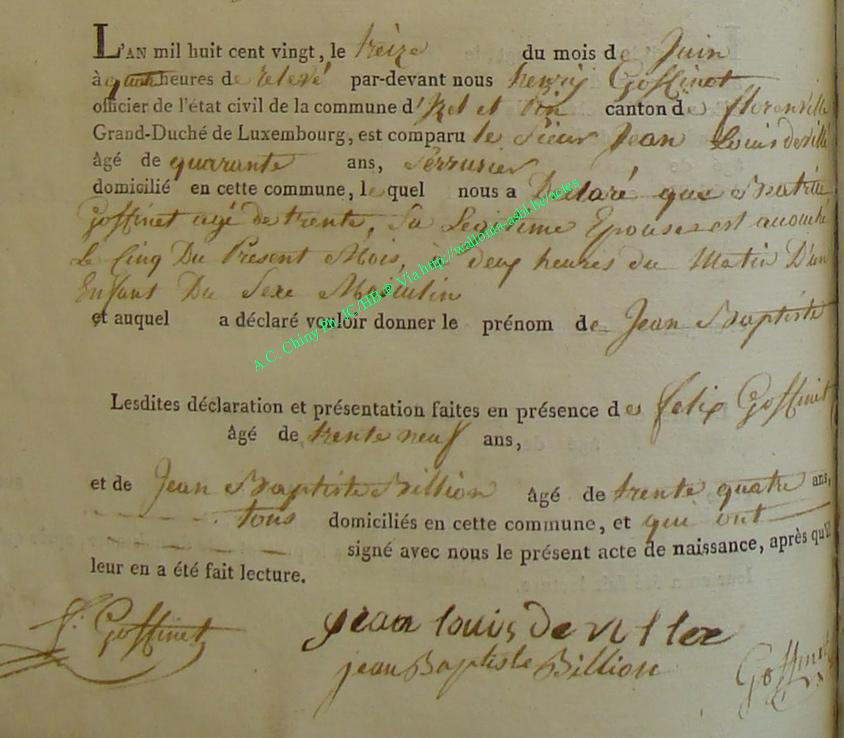 L'AN mil huit cent vingt, le treize du mois de Juin
à quatre heures de relevé par-devant nous henry Goffinet
officier de l'état civil de la commune d' et canton de florenville
Grand-Duché de Luxembourg, est comparu le Sieur Jean Louis deville
âgé de quarante ans, Serrurier
domicilié en cette commune, lequel nous a Declaré que
Goffinet agé de trente, Sa Legitime Epouse est accouché
Le Cinq Du Present Mois, à deux heures du Matin D'un
Enfant Du Sexe Masculin
et auquel a déclaré vouloir donner le prénom de Jean Baptiste
Lesdites déclaration et présentation faites en présence des felix Goffinet
âgé de trente neuf ans,
et de Jean Baptiste Billion âgé de trente quatre ans,
tous domiciliés en cette commune, et qui ont
signé avec nous le présent acte de naissance, après qu'il
leur en a été fait lecture.
f. Goffinet jean louis De ville
jean Baptiste Billion Goffinet
A.C. Chiny Ph JC/HB ® Via http://wallonia-asbl.be/actes